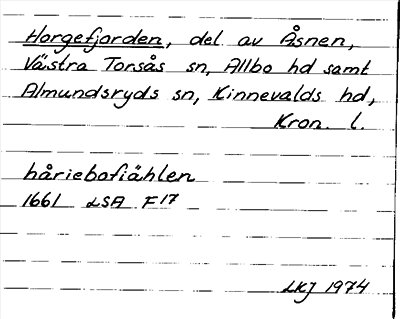 Horgefjorden, del av Åsnen,
Västra Torsås sn, Allbo hd samt
Almundsryds sn, Kinnevalds hd,
Kron. l.
håriebofiählen
1661 LSA F17
LKJ 1974